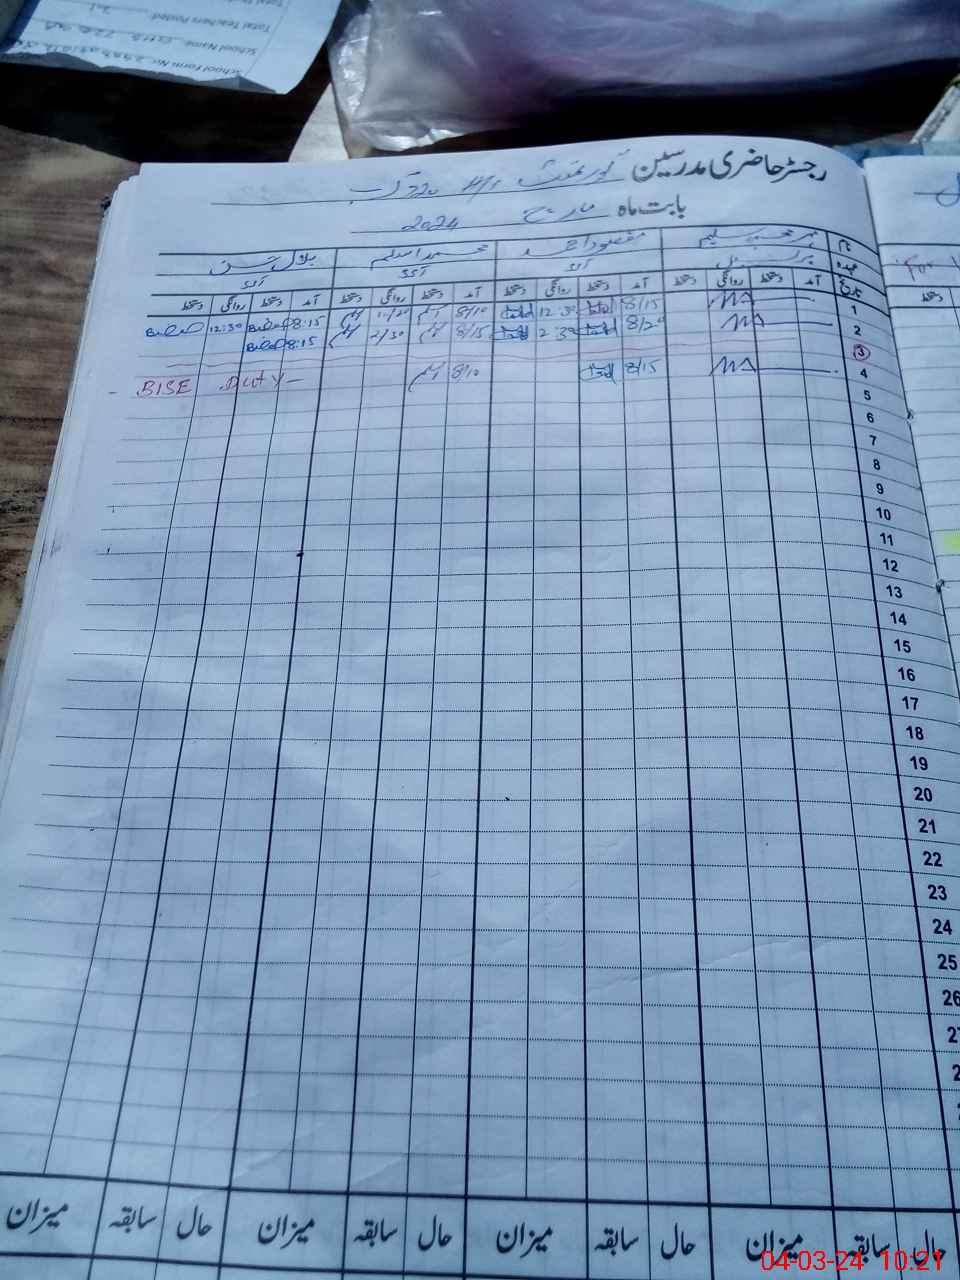 School Form No:
School Name:
Total Teachers Posted:
رجسٹر حاضری مدرسین گورنمنٹ
بابت ماہ مارچ 2024
نام
عہدہ
تاریخ
مقصود احمد
محمد اسلم
بلال حسن
آمد دستخط روانگی دستخط آمد دستخط روانگی دستخط آمد دستخط روانگی دستخط آمد دستخط روانگی دستخط
1 8/15 12:30 8/10 8:15 Bilal 12:30 Bilal
2 8/20 2:30 8/15 2/30 8:15 Bilal
3
4 8/15 8/10 BISE Duty
5
6
7
8
9
10
11
12
13
14
15
16
17
18
19
20
21
22
23
24
25
26
حال سابقہ میزان حال سابقہ میزان حال سابقہ میزان حال سابقہ میزان
04-03-24 10:21